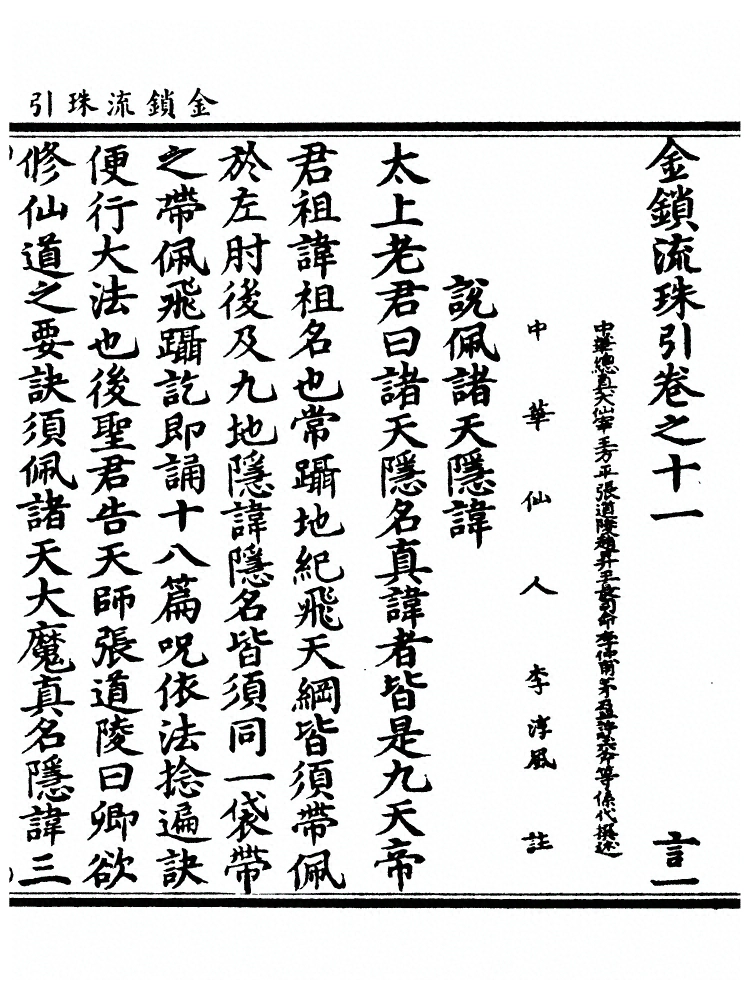 金鎖流珠引
金鎖流珠引卷之十一 言一
中華總真大仙宰王方平張道陵趙昇王長司命李仲甫茅盈許玉斧等係代撰述
中華仙人李淳風註
說佩諸天隱諱
太上老君曰諸天隱名真諱者皆是九天帝
君祖諱祖名也常躡地紀飛天綱皆須帶佩
於左肘後及九地隱諱隱名皆須同一袋帶
之帶佩飛躡訖即誦十八篇呪依法捻遍訣
便行大法也後聖君告天師張道陵曰卿欲
修仙道之要訣須佩諸天大魔真名隱諱三